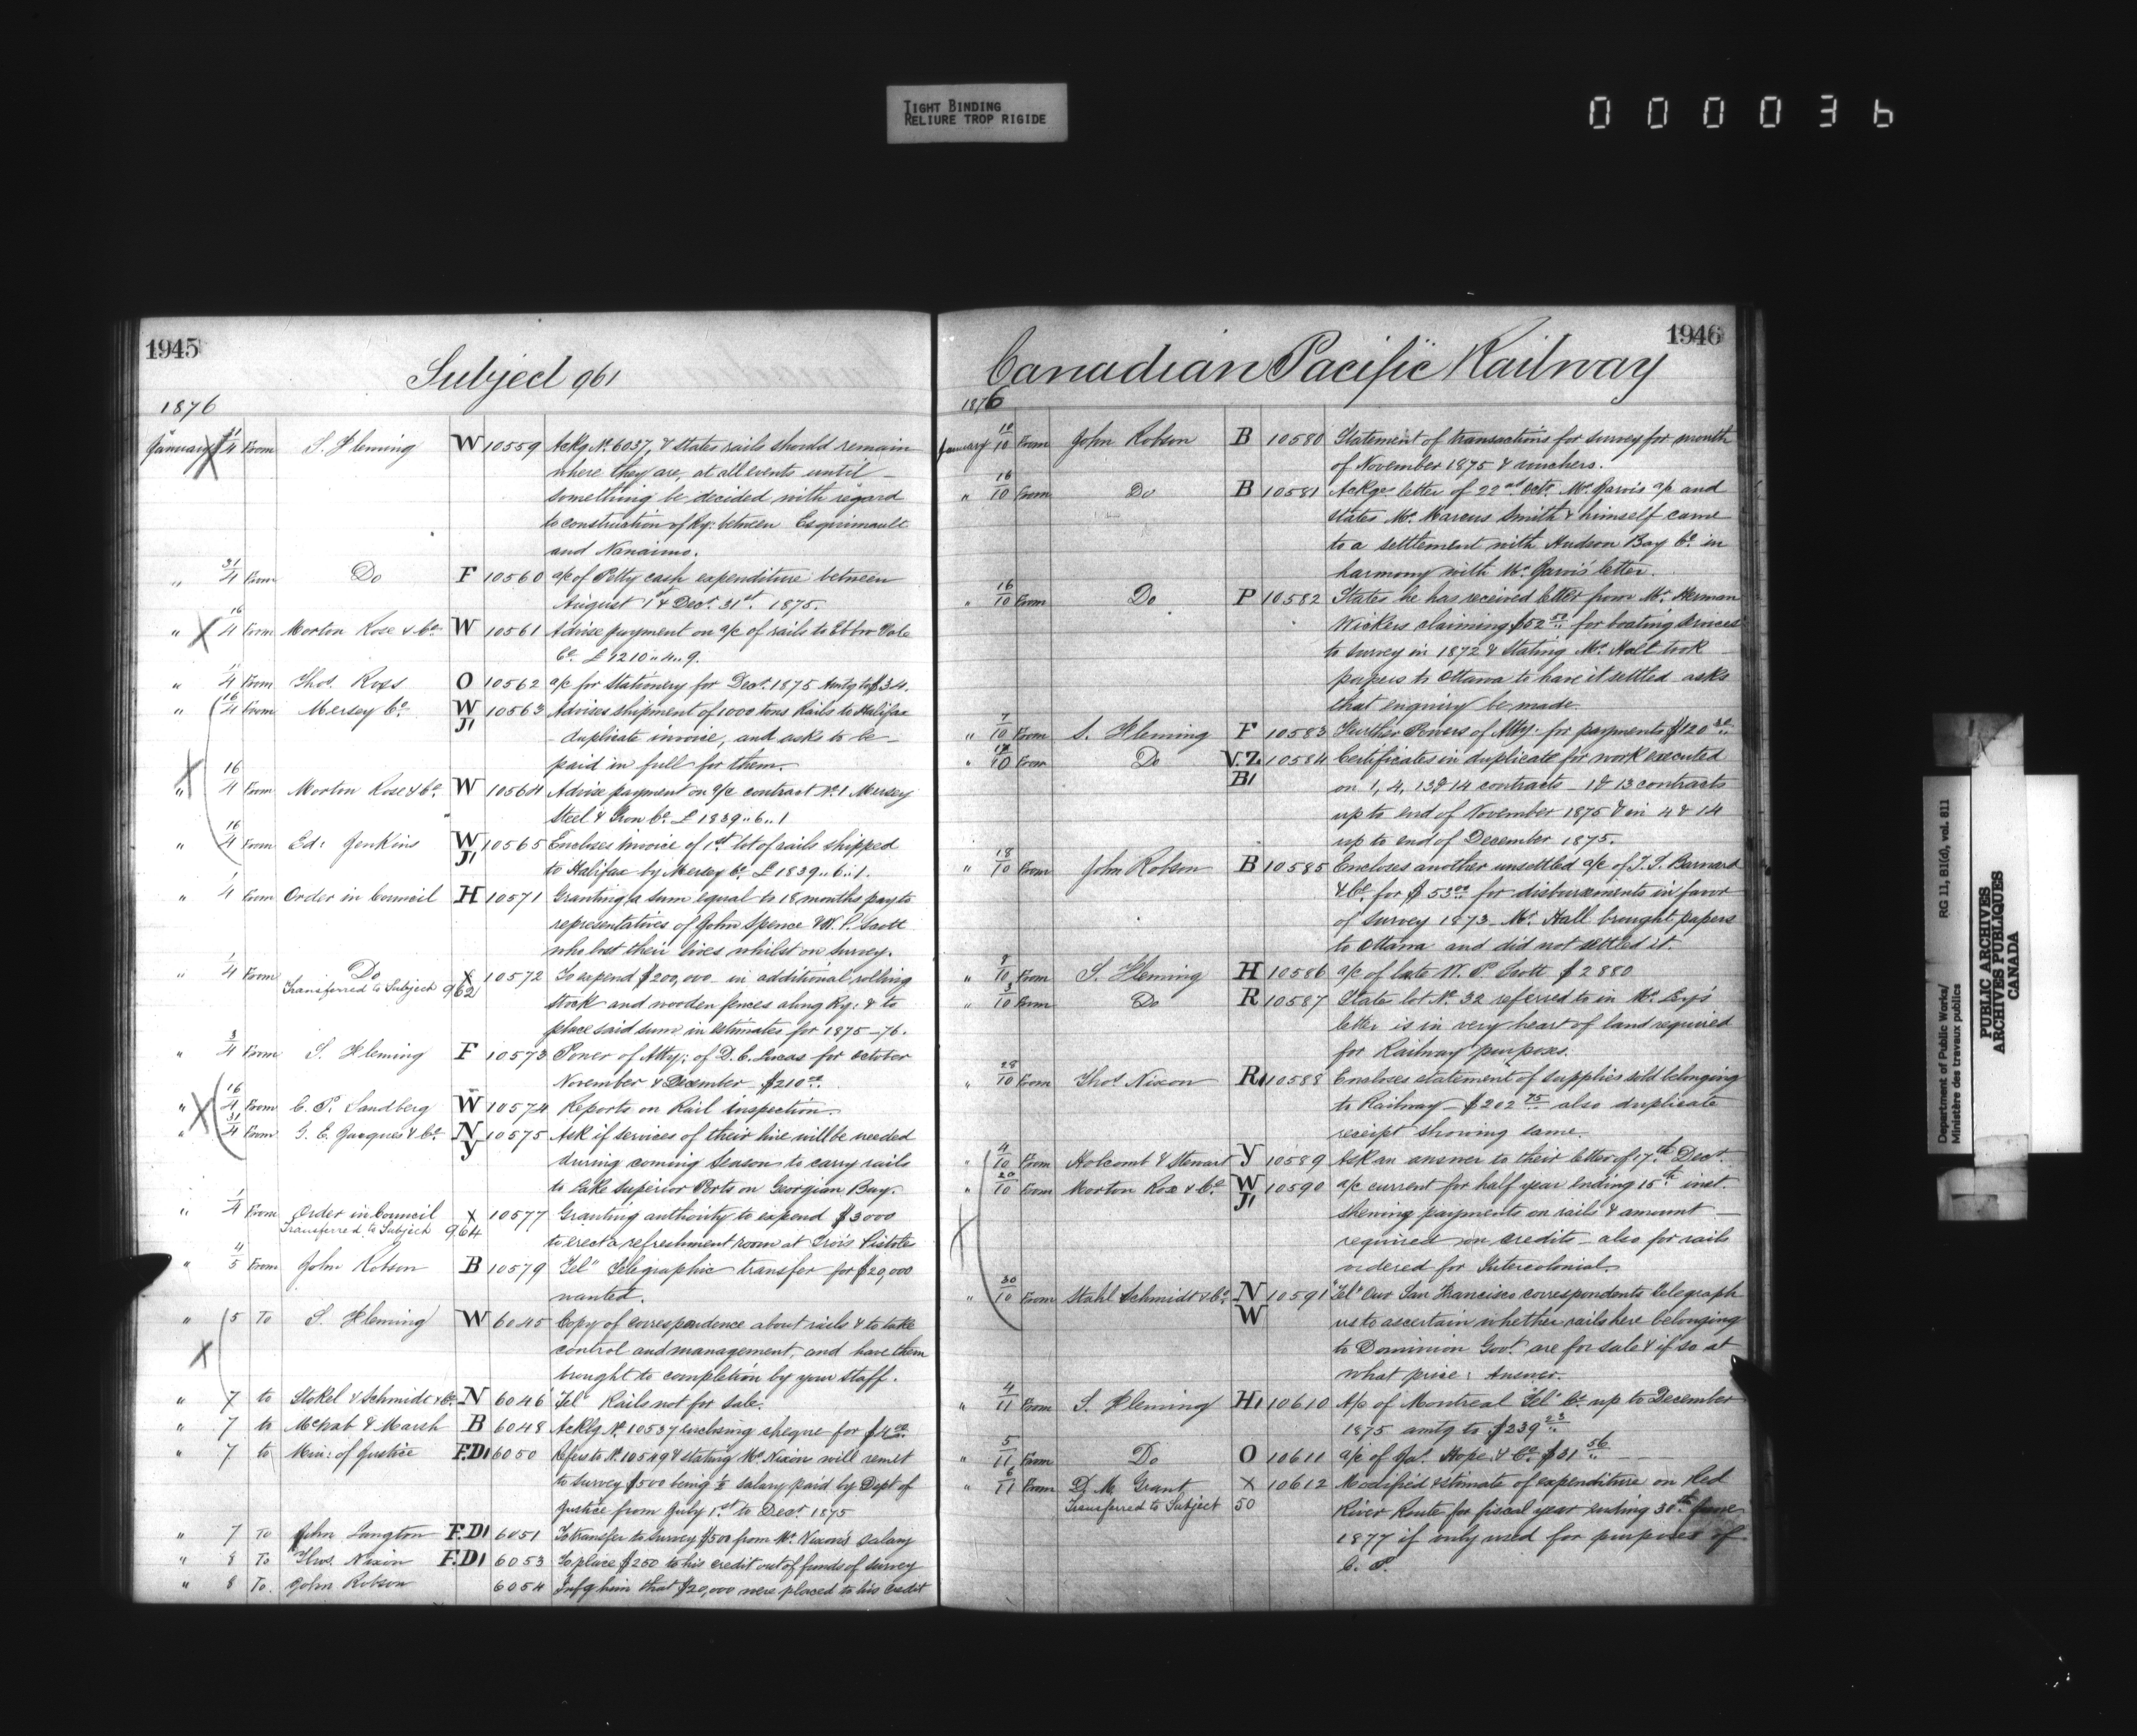 TIGHT BINDING
RELIURE TROP RIGIDE
000036
1945
Subject 961
1876
January 31/4 From S. Fleming W 10559 Ackg No. 6037, & states rails should remain
where they are, at all events until
something be decided with regard
to construction of Ry: between Esquimault
and Nanaimo.
" 31/4 From Do F 10560 a/c of Petty cash expenditure between
August 1st & Dect. 31st. 1875.
" 16/4 From Morton Rose & Co. W 10561 Advise payment on a/c of rails to Ebbw Vale
Co. £9210.. 4.. 9.
" /4 From Thos. Ross O 10562 a/c for Stationery for Dect. 1875 Amtg to $34.
" 16/4 From Mersey Co. W J1 10563 Advises shipment of 1000 tons Rails to Halifax
duplicate invoice, and asks to be
paid in full for them.
" 16/4 From Morton Rose & Co. W 10564 Advise payment on a/c contract No. 1 Mersey
Steel & Iron Co. £1839.. 6.. 1
" 16/4 From Ed: Jenkins W J1 10565 Encloses invoice of 1st lot of rails shipped
to Halifax by Mersey Co. £1839.. 6.. 1.
" 1/4 From Order in Council H 10571 Granting a sum equal to 18 months pay to
representatives of John Spence & W. P. Scott
who lost their lives whilst on Survey.
" 1/4 From Do X 10572 To expend $200,000 in additional rolling
Transferred to Subject 962
stock and wooden fences along Ry: & to
place said sum in estimates for 1875-76.
" 3/4 From S. Fleming F 10573 Power of Atty: of D. C. Lucas for October
November & December $210 00.
" 16/4 From C. P. Sandberg W 10574 Reports on Rail inspection.
" 31/4 From G. E. Jacques & Co. N Y 10575 Ask if services of their line will be needed
during coming season to carry rails
to Lake Superior Ports on Georgian Bay.
" 1/4 From Order in Council X 10577 Granting authority to expend $3000
Transferred to Subject 964
to erect a refreshment room at Trois Pistoles
" 4/5 From John Robson B 10579 Tel" Telegraphic transfer for $20,000
wanted.
" 5 To S. Fleming W 6045 Copy of correspondence about rails & to take
control and management, and have them
brought to completion by your staff.
" 7 to Stokel & Schmidt & Co. N 6046 Tel" Rails not for sale.
" 7 to McNab & Marsh B 6048 Ackg No. 10537 enclosing cheque for $4 00.
" 7 to Min: of Justice F.D1 6050 Refers to No. 10549 & stating Mr. Nixon will remit
to Survey $500 being 1/2 salary paid by Dept of
Justice from July 1st to Dect 1875
" 7 To John Langton F.D1 6051 To transfer to Survey $500 from Mr. Nixon's salary
" 8 To Thos. Nixon F.D1 6053 To place $250 to his credit out of funds of survey
" 8 To. John Robson 6054 Infg him that $20,000 were placed to his credit
1946
Canadian Pacific Railway
1876
January 10 From John Robson B 10580 Statement of transactions for survey for month
of November 1875 & vouchers.
" 16/10 From Do B 10581 Ackges letter of 22nd Octr. Mr. Jarvis a/c and
states Mr. Marcus Smith & himself came
to a settlement with Hudson Bay Co. in
harmony with Mr. Jarvis' letter.
" 16/10 From Do P 10582 States he has received letter from Mr. Herman
Wickers claiming $52 50 for boating services
to survey in 1872 & stating Mr. Hall took
papers to Ottawa to have it settled asks
that enquiry be made.
" 7/10 From S. Fleming F 10583 Further Powers of Atty: for payments $120
" 17/10 From Do V.Z. B1 10584 Certificates in duplicate for work executed
on 1, 4, 13 & 14 contracts – 1 & 13 contracts
up to end of November 1875 & in 4 & 14
up to end of December 1875.
" 18/10 From John Robson B 10585 Encloses another unsettled a/c of Barnard
& Co. for $53 00 for disbursements in favor
of survey 1873. Mr. Hall brought papers
to Ottawa and did not settled it.
" 8/10 From S. Fleming H 10586 a/c of late W. P. Scott $2880
" 3/10 From Do R 10587 State lot No. 32 referred to in Mr.
letter is in very heart of land required
for Railway purposes.
" 28/10 From Thos. Nixon R1 10588 Encloses statement of supplies sold belonging
to Railway – $202 75 also duplicate
receipt showing same.
" 4/10 From Holcomb & Stewart Y 10589 Ask an answer to their letter of 17th Dect.
" 20/10 From Morton Rose & Co. W J1 10590 a/c current for half year ending 15th inst.
shewing payments on rails & amount
required on credits – also for rails
ordered for Intercolonial.
" 30/10 From Stahl Schmidt & Co. N W 10591 "Tel" Our San Francisco correspondents telegraph
us to ascertain whether rails here belonging
to Dominion Govt. are for sale & if so at
what price: Answer.
" 4/11 From S. Fleming H1 10610 A/c of Montreal Tel Co. up to December
1875 amtg to $239 23.
" 5/11 From Do O 10611 a/c of Jas. Hope & Co. $31 56
" 6/11 From D. M. Grant X 10612 Modified estimate of expenditure on Red
Transferred to Subject 50
River Route for fiscal year ending 30th June
1877 if only used for purposes of
C. P.
Department of Public Works/ RG 11, B1(d), vol. 811
Ministère des travaux publics
PUBLIC ARCHIVES
ARCHIVES PUBLIQUES
CANADA